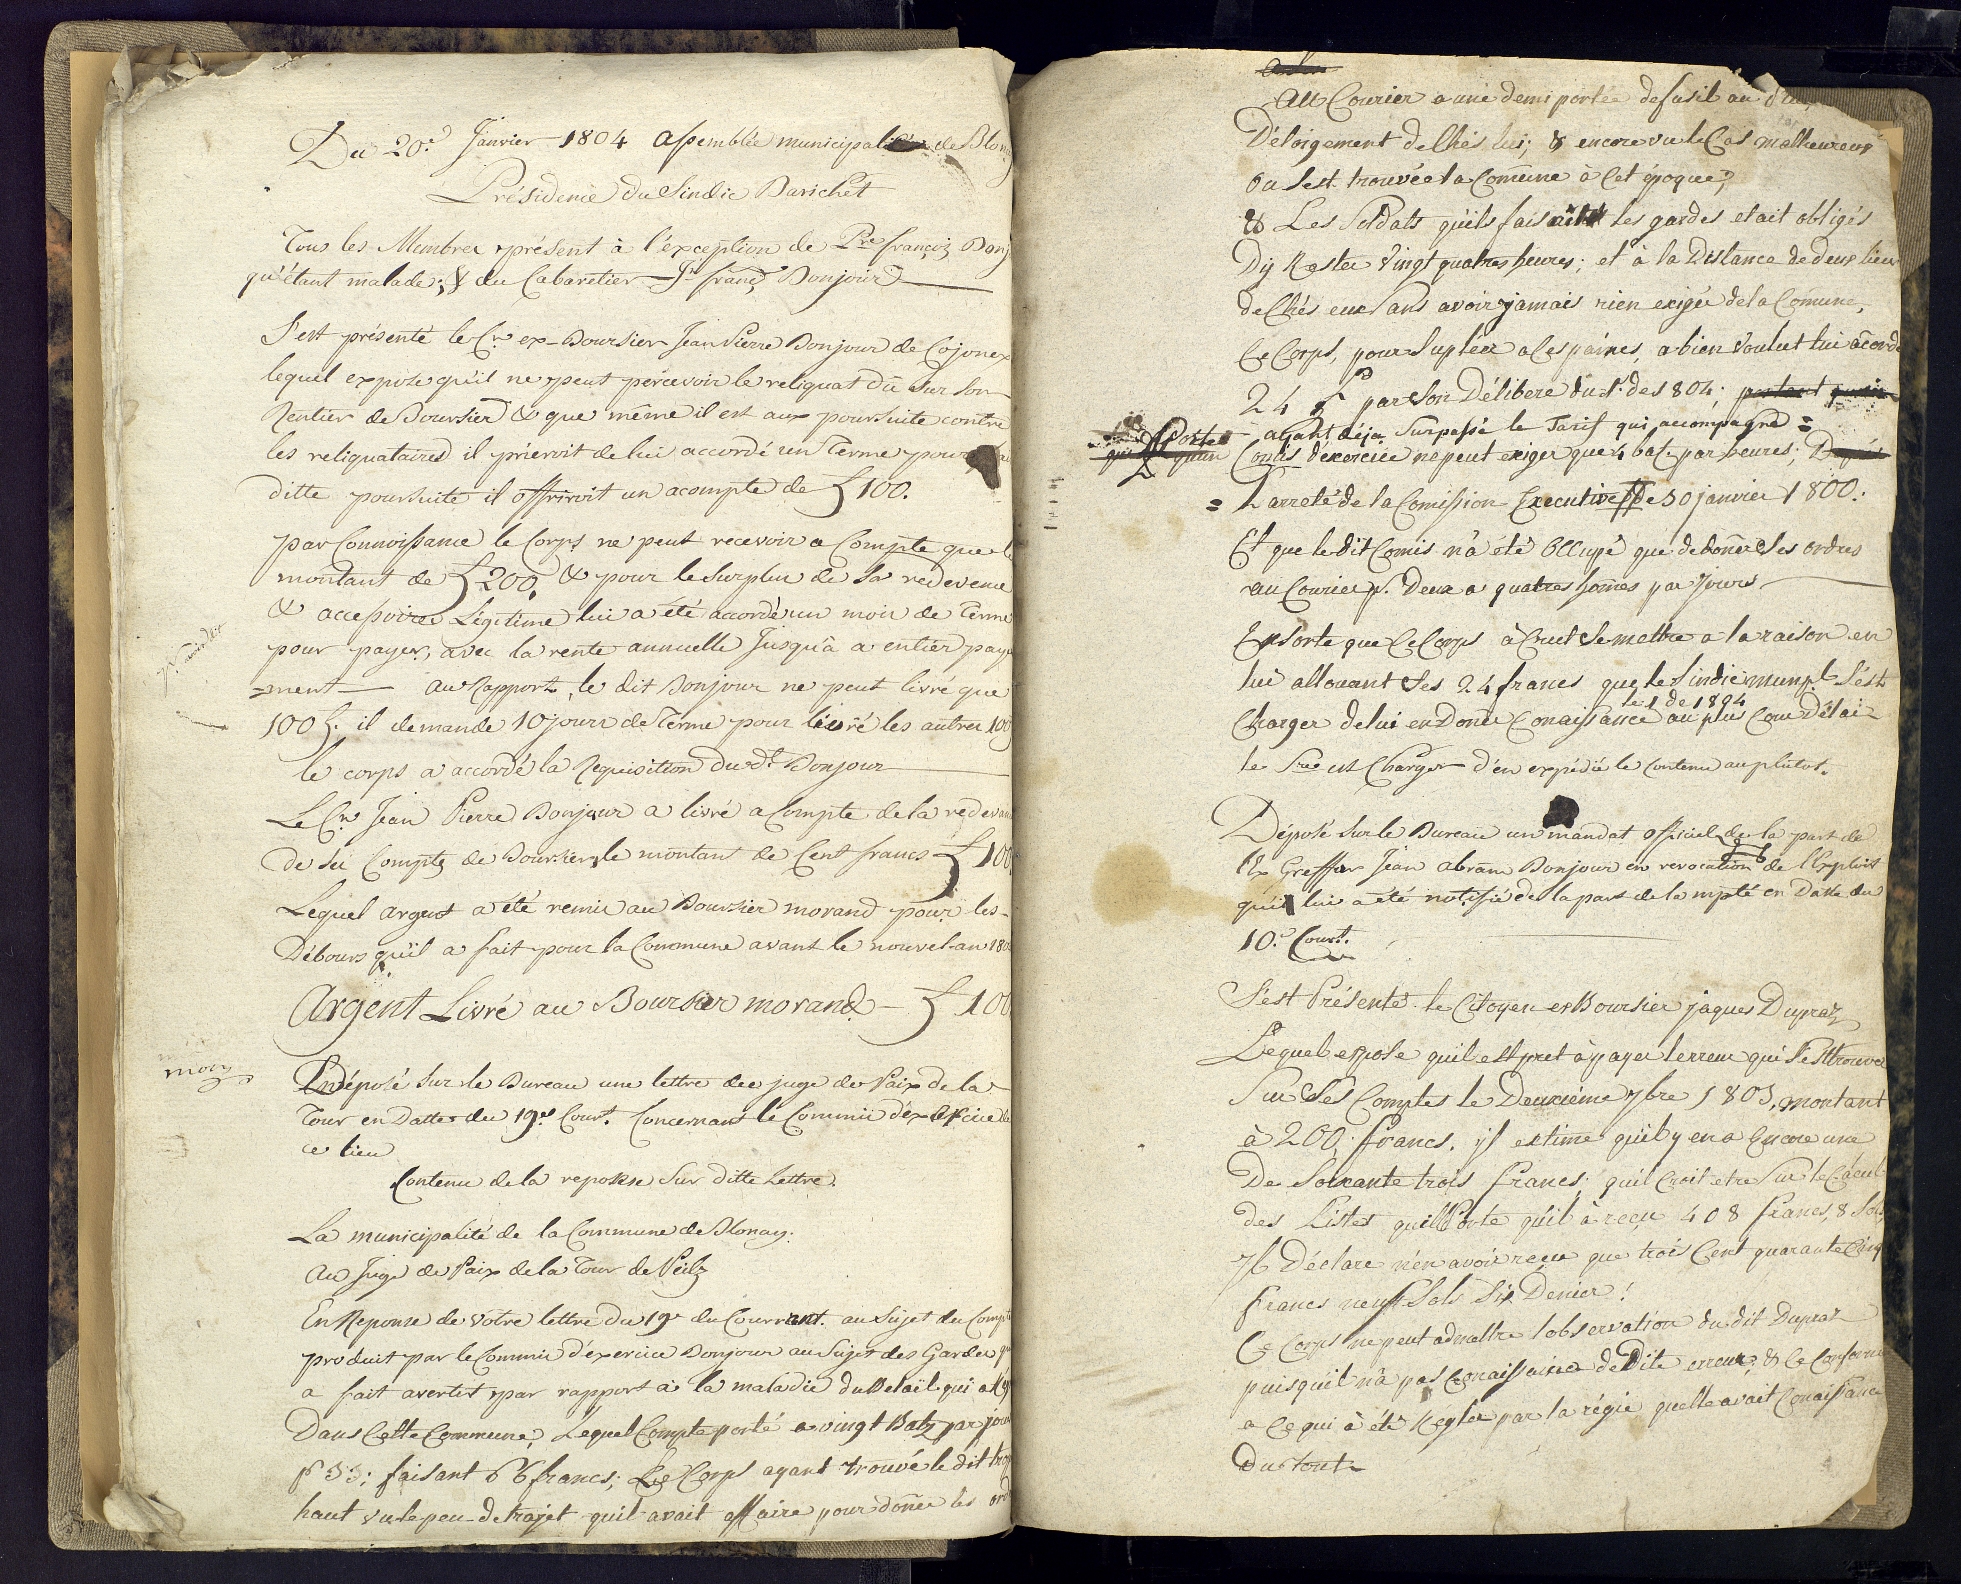 Du 20.e Janvier 1804 assemblée municipale de Blonay
Présidence du Sindic Barichet
Tous les Membres présent à l'éxception de Pre françois Bonj
qu'étant malade; & du Cabaretier Jn franç Bonjour
S'est présenté le Cn ex-Boursier Jean Pierre Bonjour de Cojonex
lequel expose qu'il ne peut pércevoir le reliquat dû sur son
Rentier de Boursier & que même il est aux poursuite contre
les reliquataires il prieroit de lui accordé un Terme pour
ditte poursuite il offriroit un acompte de £ 100.
par Connoissance le Corps ne peut recevoir a Compte que le
montant de £ 200. & pour le surplus de sa redevence
& accessoires Légitime lui a été accordé un mois de Terme
pour payer, avec la rente annuelle Jusqu'à a entier paye
=ment — au Rapport, le dit Bonjour ne peut livré que
100 £. il demande 10 jours de Terme pour livré les autres 100
le corps a accordé la Requisition du dt Bonjour
Le Cn Jean Pierre Bonjour a livré a Compte de la redevan
de sei Compte de Boursier le montant de Cent francs £ 100
Lequel argent a été remis au Boursier morand pour les
Débours qu'il a fait pour la Commune avant le nouvel-an 180
Argent Livré au Boursier morand — £ 100
morz
Déposé sur le Bureau une lettre du juge de Paix de la
Tour en Datte du 19e Court. Concernant le Commis d'éxercice de
ce lieu
Contenu de la reponse Sur ditte Lettre.
La municipalité de la Commune de Blonay.
Au Juge de Paix de la Tour de Peilz
En Reponse de votre lettre du 19e du Courrant. au Sujet du Compte
produit par le Commis d'éxercice Bonjour au Sujet des Gardes qu
a fait avertir par rapport à la maladie du Betail qui a
Dans Cette Commune, Lequel Compte porté a vingt Batz par jour
pr 33: faisant 66 francs; Le Corps ayant trouvé le dit trop
haut vu le peu de trajet quil avait affaire pour doñer les ord
Au Courier a une demi portée de fusil au
D'éloigement de Chés lui; & encore vu le Cas malheureux
Ou s'est trouvée la Comune à Cet époque;
& Les Soldats qu'ils faisait les gardes etait obligés
Dÿ Rester vingt quatres heures; et à la Distance de deux lieu
de Chés eux sans avoir jamais rien exigée de la Comune,
Ce Corps, pour supléer a Ces paines, a bien voulut lui acorde
24 £ par son Délibéré du 1. des 804:
ayant déja surpassé le Tarif qui accompagne =
Porte
Comis d'exercice ne peut exiger que 4 batz par heures;
= L'arreté de la Comission Executive de 30 janvier 1800.
Et que le dit Comis n'a été Occupé que de doñer Ses ordres
au Courier pr. Deux a quatres homes par Jours
Ensorte que Ce Corps à Crut se mettre a la raison en
lui allouant Ses 24 francs que le Sindic munpl. s'est
le 1 de 1804
Charger de lui en Doñer Conaissance au plus Cour Délai
le Sre est Charger d'en expédié le Contenu au plutot.
Déposé sur le Bureau un mandat officiel de la part de
l'Ex Greffier Jean abram Bonjour en revocation de l'Exploit
qu'il lui a été notifié de la part de la mpté en Datte du
10.e Court.
S'est Présenté le Citoyen ex Boursier jaques Dupraz
Lequel expose quil est pret à payer lerreur qui S'est trouve
Sur Ses Comptes le Deuxième 7bre 1803, montant
à 200, francs. il estime quil y en a Encore une
De Soixante trois francs; quil Croit etre sur le Cacul
des Listes quil Porte qu'il à reçu 408 francs, 8 sols
Il Déclare n'en avoir reçu que trois Cent quarante Cinq
francs neuf Sols Six Denier!
Ce Corps ne peut admettre lobservation du dit Dupraz
puisquil n'à pas Conaissance de Dite erreur, & Ce Conforme
a Ce qui à été Regler par la régie quelle avait Conaissance
Du tout